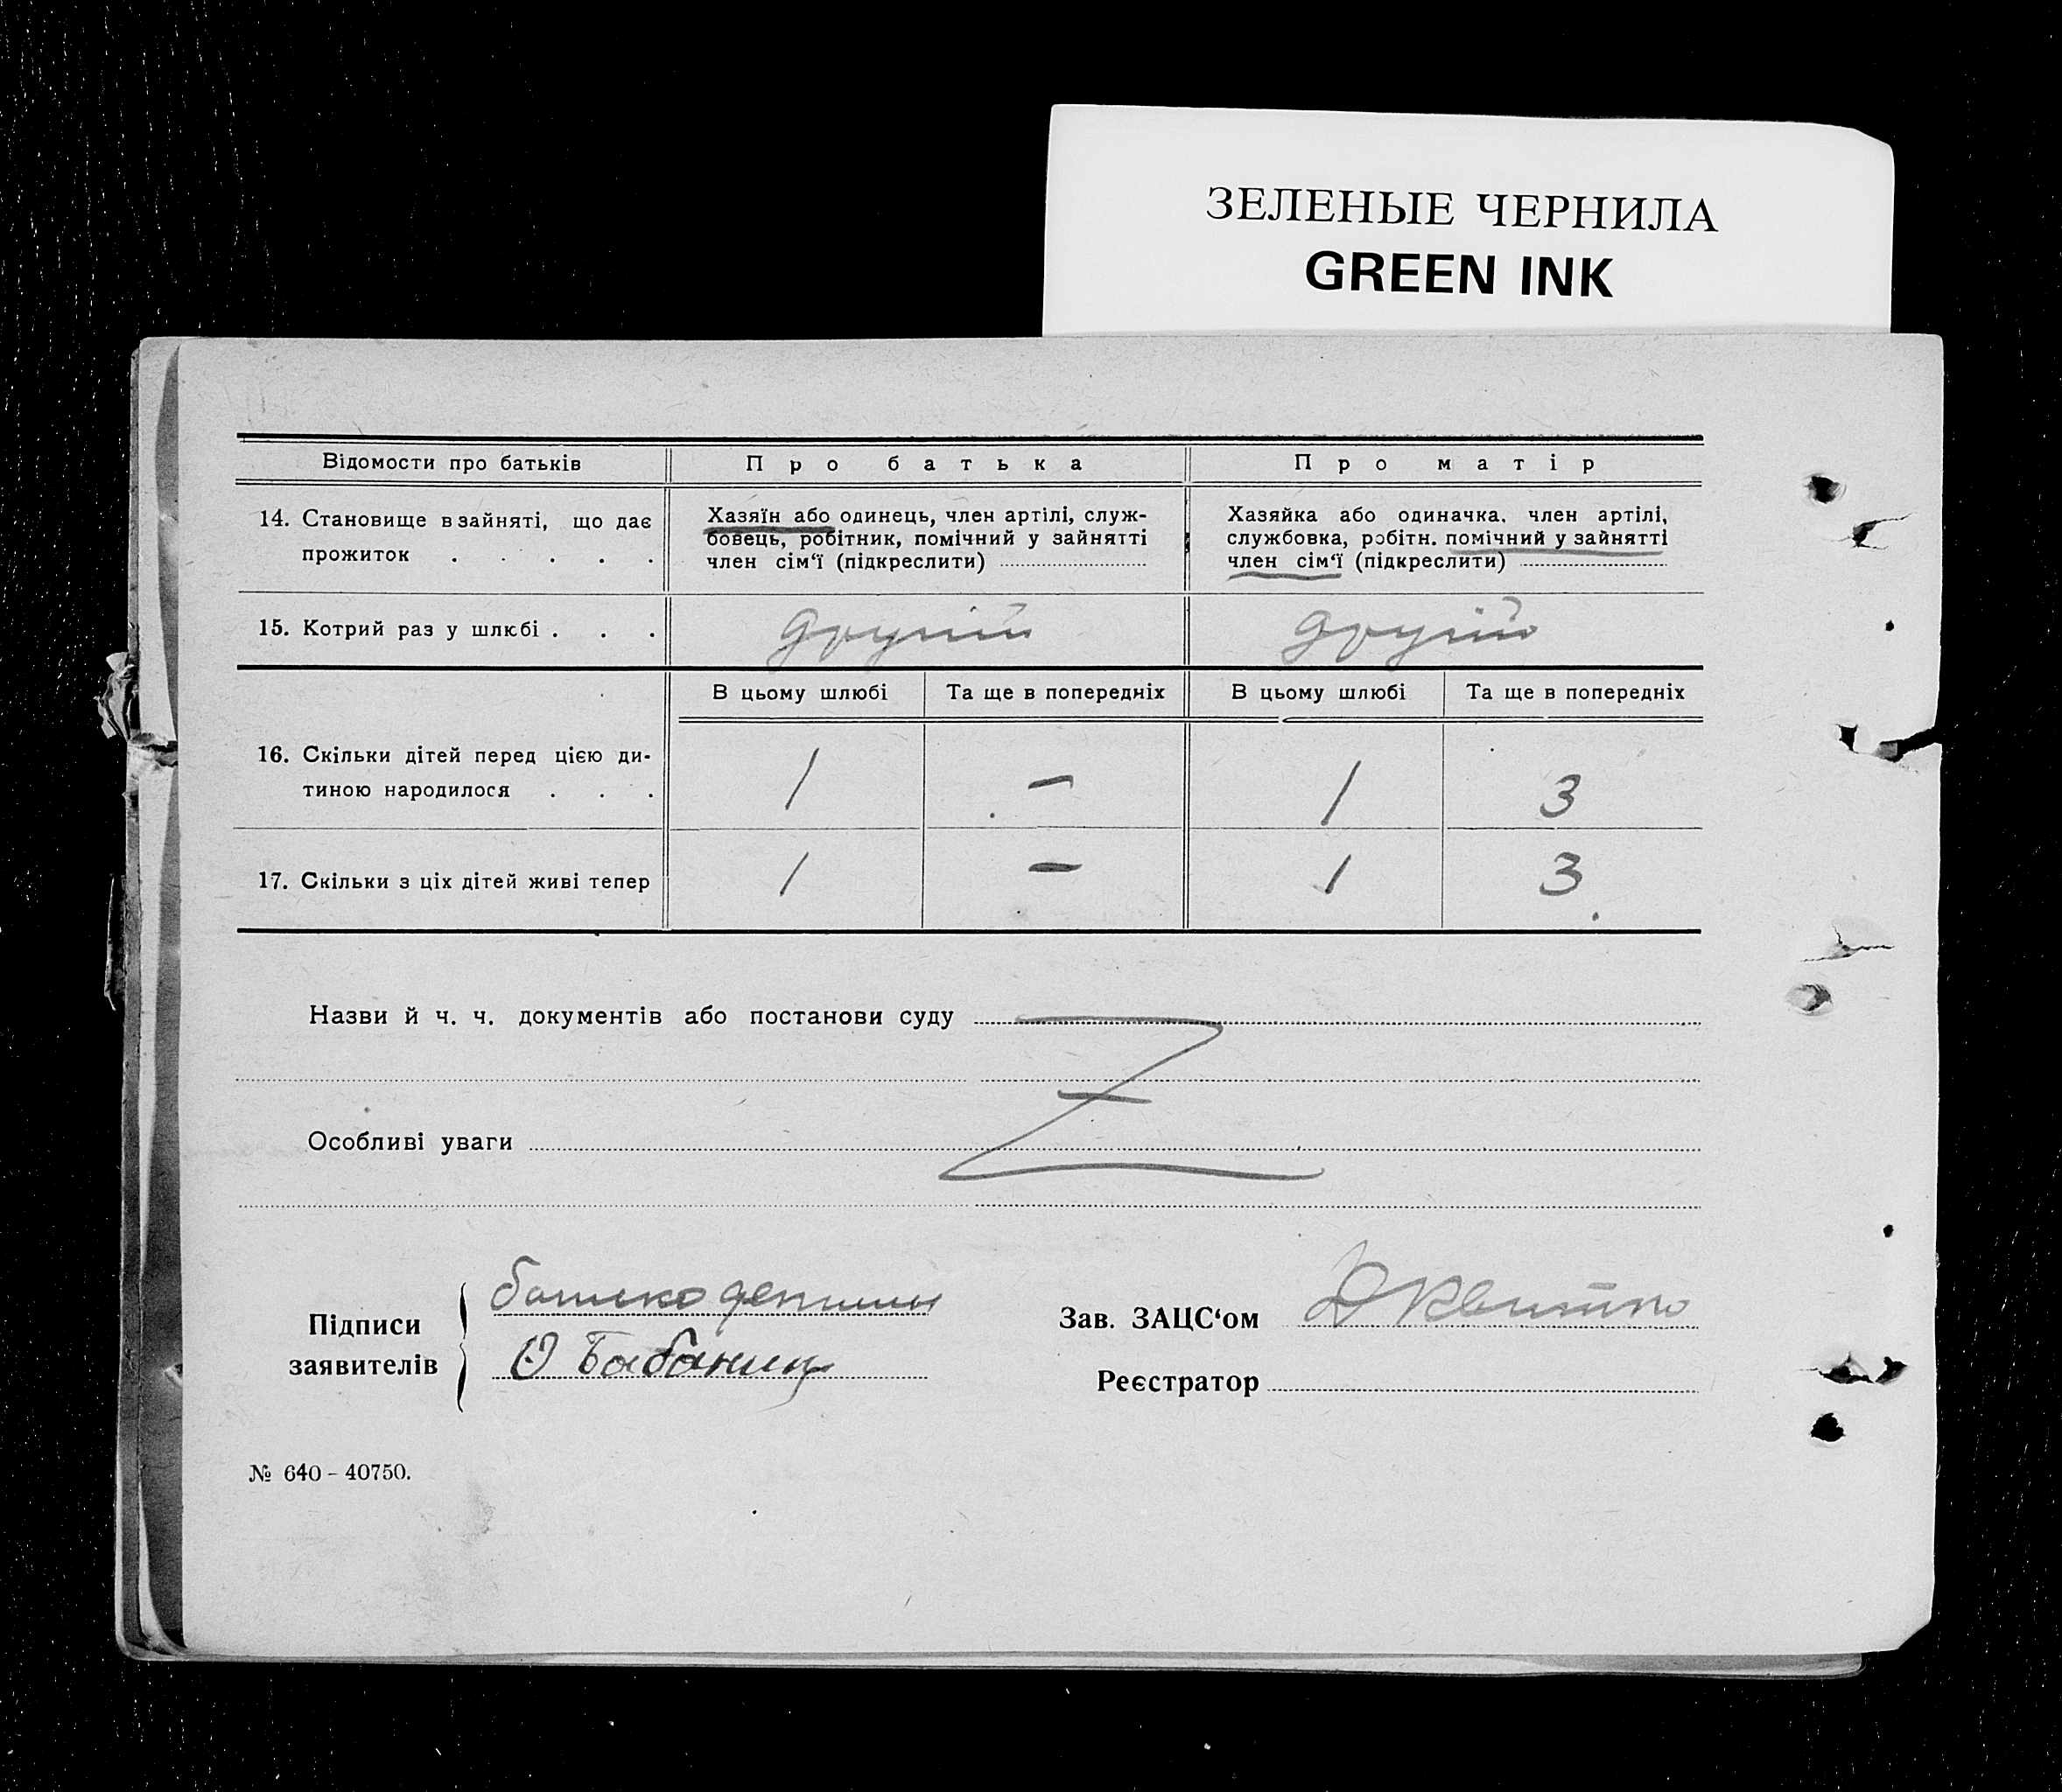 ЗЕЛЕНЫЕ ЧЕРНИЛА
GREEN INK
Відомости про батьків Про батька Про матір
14. Становище в зайняті, що дає прожиток . . . . .
Хазяїн або одинець, член артілі, служ-
бовець, робітник, помічний у зайнятті
член сім‘ї (підкреслити)
Хазяйка або одиначка. член артілі,
службовка, робітн. помічний у зайнятті
член сім‘ї (підкреслити)
15. Котрий раз у шлюбі . . . другий другий
В цьому шлюбі Та ще в попередніх В цьому шлюбі Та ще в попередніх
16. Скільки дітей перед цією ди-
тиною народилося . . . 1 – 1 3
17. Скільки з ціх дітей живі тепер 1 – 1 3
Назви й ч. ч. документів або постанови суду
Особливі уваги
Підписи
заявителів
батько
О Бабанин
Зав. ЗАЦС‘ом Квитко
Реєстратор
№ 640 – 40750.